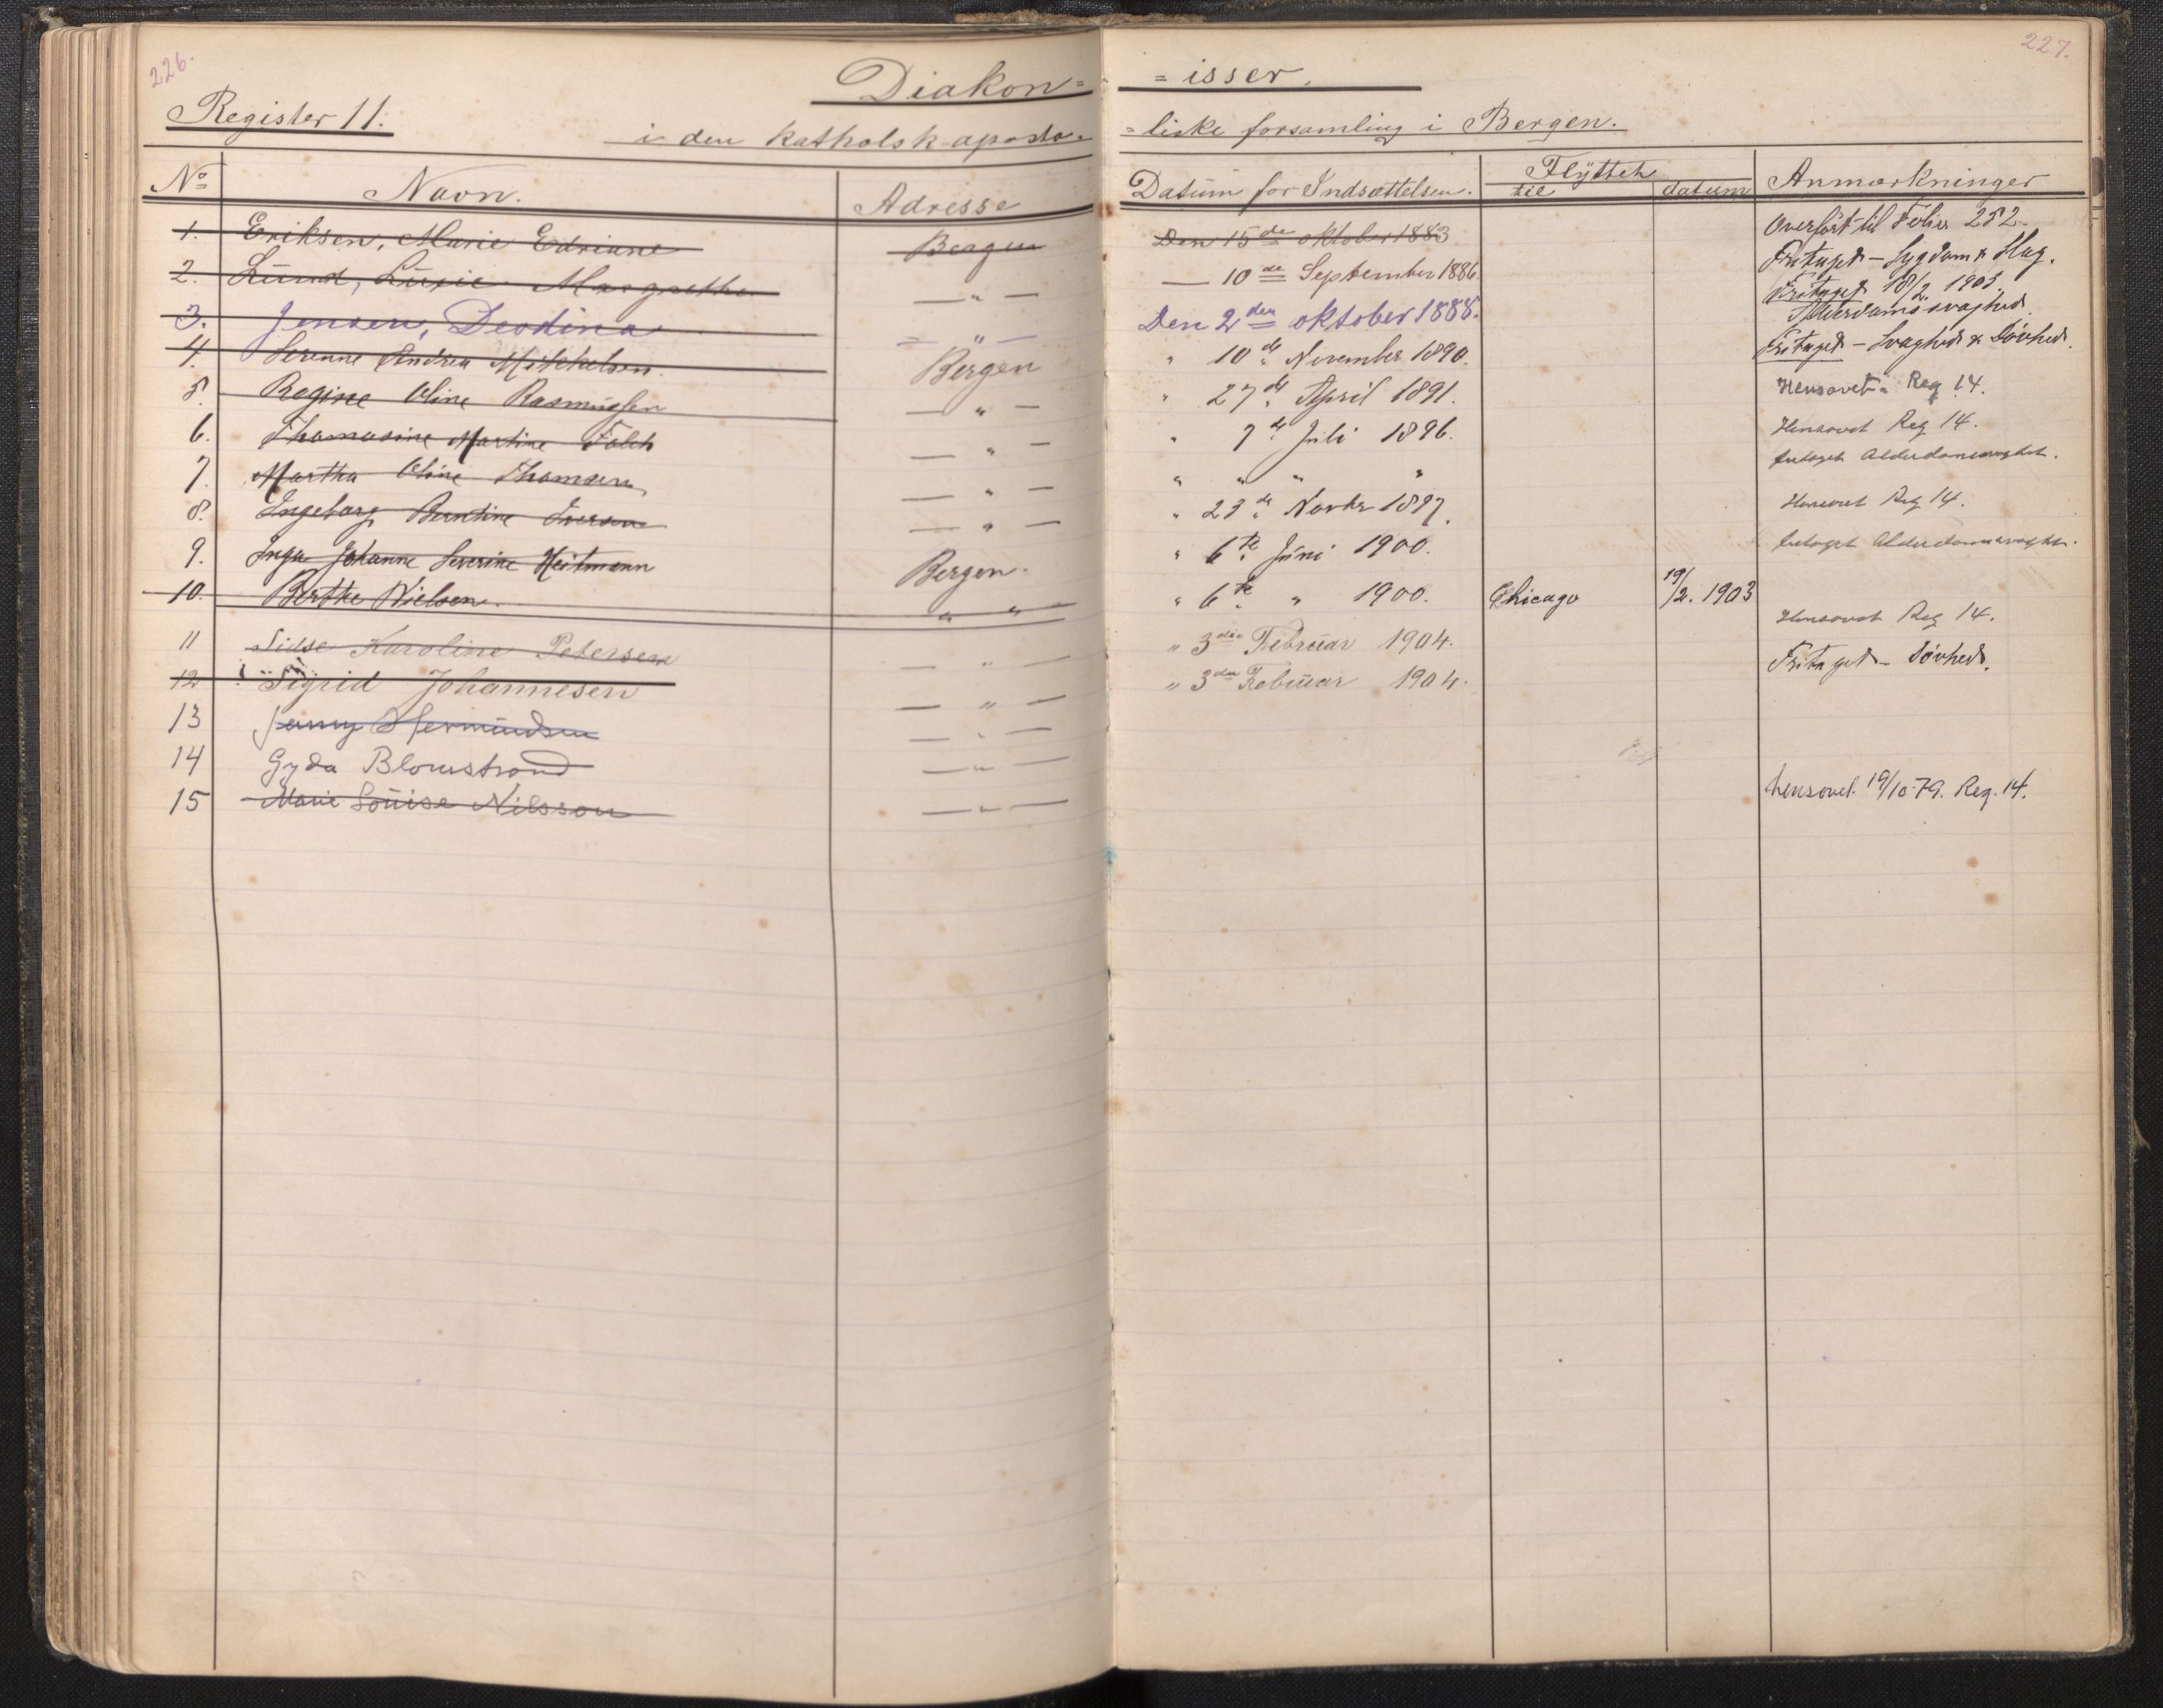 226.
227.
Diakon= =isser.
Register 11.
i den katholsk-aposto= =liske forsamling i Bergen.
No Navn. Adresse Datum for Indsættelsen. Flyttet til datum Anmærkninger
1. Eriksen, Marie Edriane Bergen Den 15de oktober 1883 Overført til Folier 252.
2. Lund, Lüsie Margrethe — " — — 10de September 1886. Fritaget – Sygdom & Slag.
3. Jensen, Deodina — " — Den 2den oktober 1888. Fritaget 18/2. 1903. Alderdomssvaghed.
4. Serenne Andrea Mitchelsen. Bergen " 10de November 1890. Fritaget – Svaghed & Døvhed.
5. Regine Oline Rasmussen — " — " 27de April 1891. Hensovet. Reg 14.
6. Thomasine Martine Falch — " — " 7de Juli 1896. Hensovet Reg 14.
7. Martha Oline Thomsen — " — " " " " fritaget Alderdomssvaghet.
8. Ingeborg Berntine Iversen — " — " 23de Novbr 1897. Hensovet Reg 14.
9. Inga Johanne Severine Heitmann Bergen. " 6te Juni 1900. fritaget Alderdomssvaghet.
10. Berthe Nielsen. " " " 6te " 1900. Chicago 19/2. 1903
11 Sidse Karoline Petersen — " — " 3die Februar 1904. Hensovet Reg 14.
12 Sigrid Johannesen — " — " 3die Februar 1904. Fritaget – Døvhed.
13 Jenny Hermundsen — " —
14 Gyda Blomstrand — " —
15 Marie Louise Nilsson — " — hensovet. 19/10-79. Reg. 14.